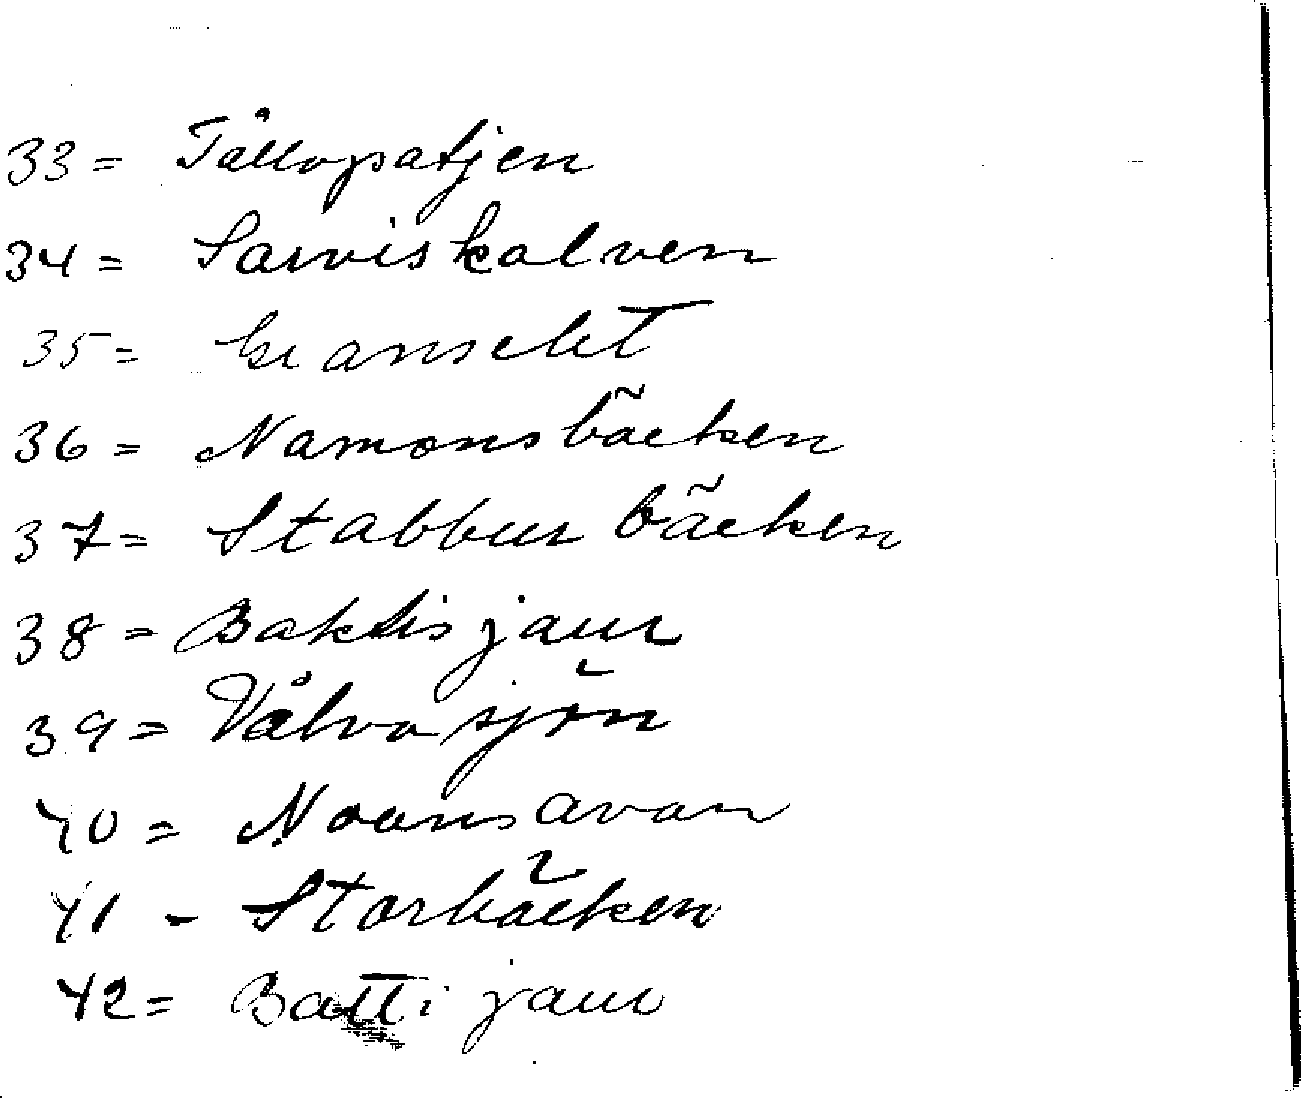 33 = Tållopatjen
34 = Sarviskalven
35 = Granselet
36 = Namonsbäcken
37 = Stabburbäcken
38 = Baktisjaur
39 = Vålvasjön
40 = Noonsavan
41 - Storbäcken
42 = Batti jaur